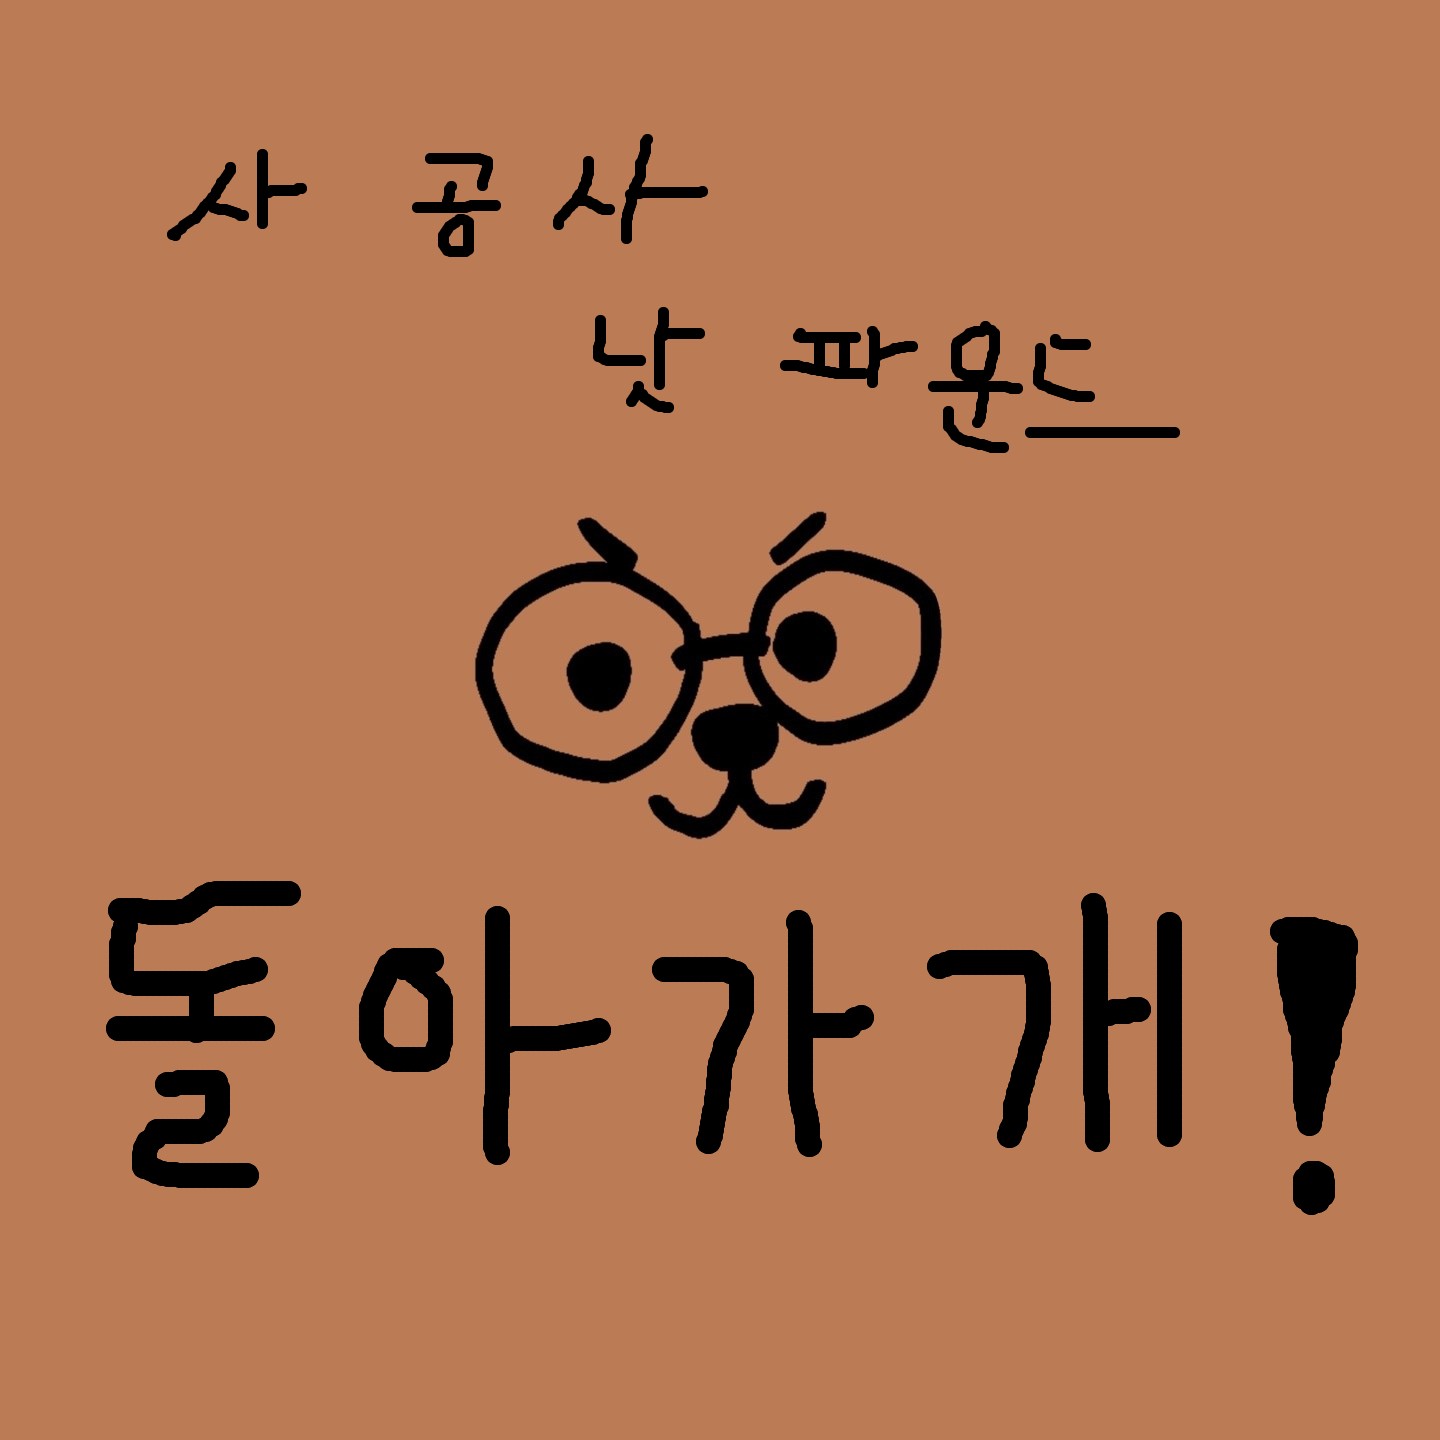 사 공사
낫 파운드
돌아가개!